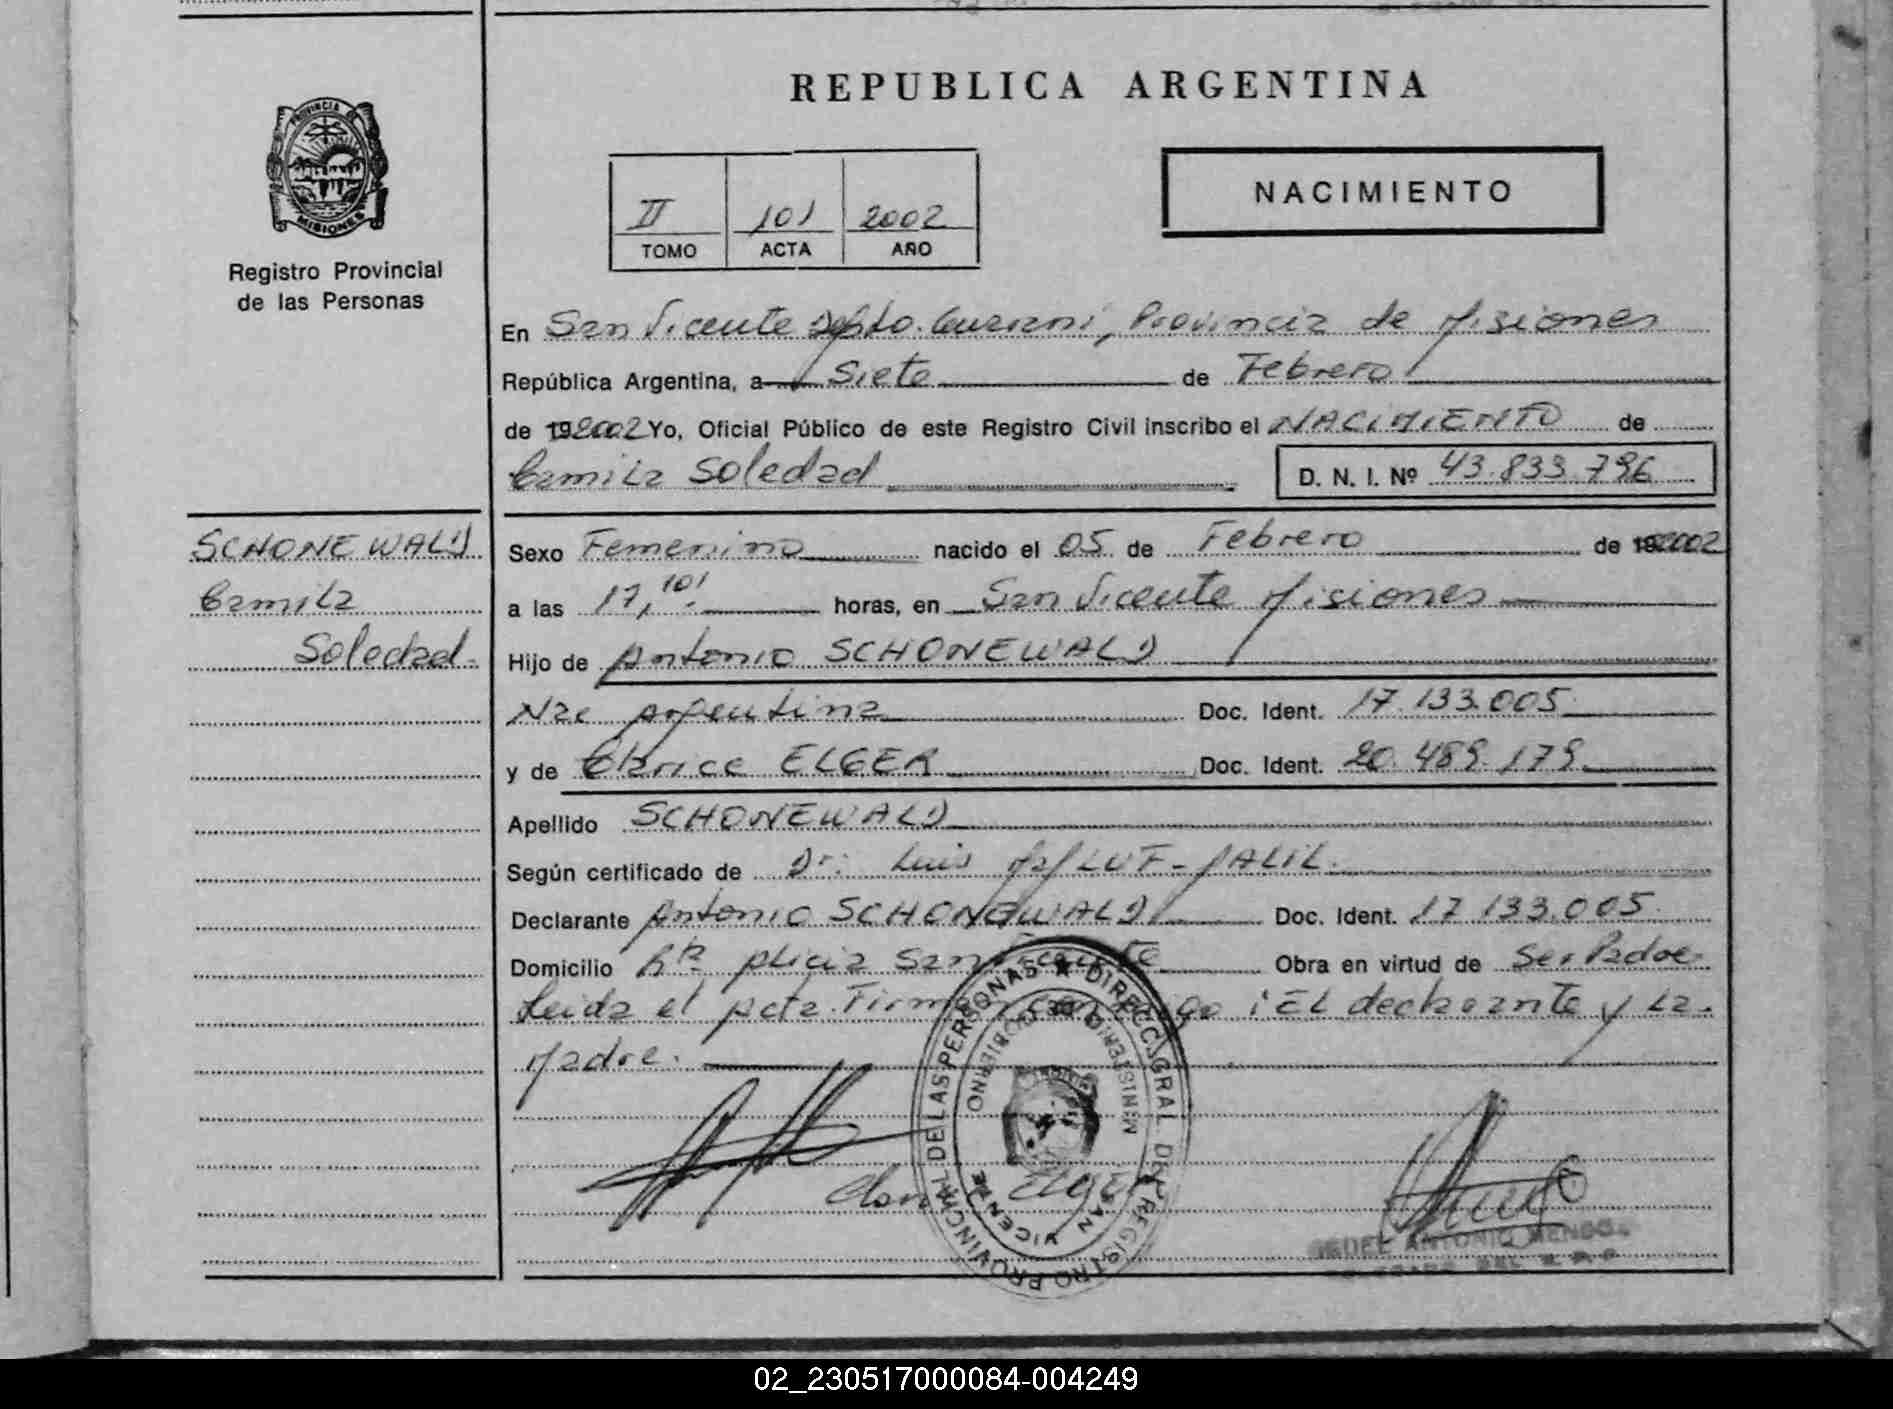 REPUBLICA ARGENTINA
PROVINCIA
MISIONES
Registro Provincial
de las Personas
II 101 2002
TOMO ACTA AÑO
NACIMIENTO
En San Vicente Dpto. Guarani, Provincia de Misiones
República Argentina, a Siete de Febrero
de 192002 Yo, Oficial Público de este Registro Civil inscribo el NACIMIENTO de
Camila Soledad D. N. I. Nº 43.833.796
SCHONEWALD
Camila
Soledad.
Sexo Femenino nacido el 05 de Febrero de 192002
a las 17,10' horas, en San Vicente Misiones
Hijo de Antonio SCHONEWALD
Nac Argentina Doc. Ident. 17.133.005
y de Clarice ELGER Doc. Ident. 20.489.179
Apellido SCHONEWALD
Según certificado de Dr. Luis
Declarante Antonio SCHONEWALD Doc. Ident. 17.133.005
Domicilio San Vicente Obra en virtud de Ser Padre
Leida el Acta. Firman conmigo: El declarante y La
Madre.
DIRECC. GRAL DEL REGISTRO PROVINCIAL DE LAS PERSONAS
MINISTERIO DE GOBIERNO
SAN VICENTE
Elger
ANTONIO
02_230517000084-004249